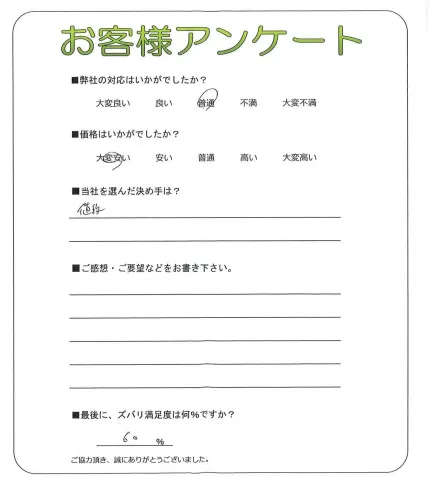 お客様アンケート
■弊社の対応はいかがでしたか？
大変良い 良い 普通 不満 大変不満
■価格はいかがでしたか？
大変安い 安い 普通 高い 大変高い
■当社を選んだ決め手は？
値段
■ご感想・ご要望などをお書き下さい。
■最後に、ズバリ満足度は何%ですか？
60 %
ご協力頂き、誠にありがとうございました。